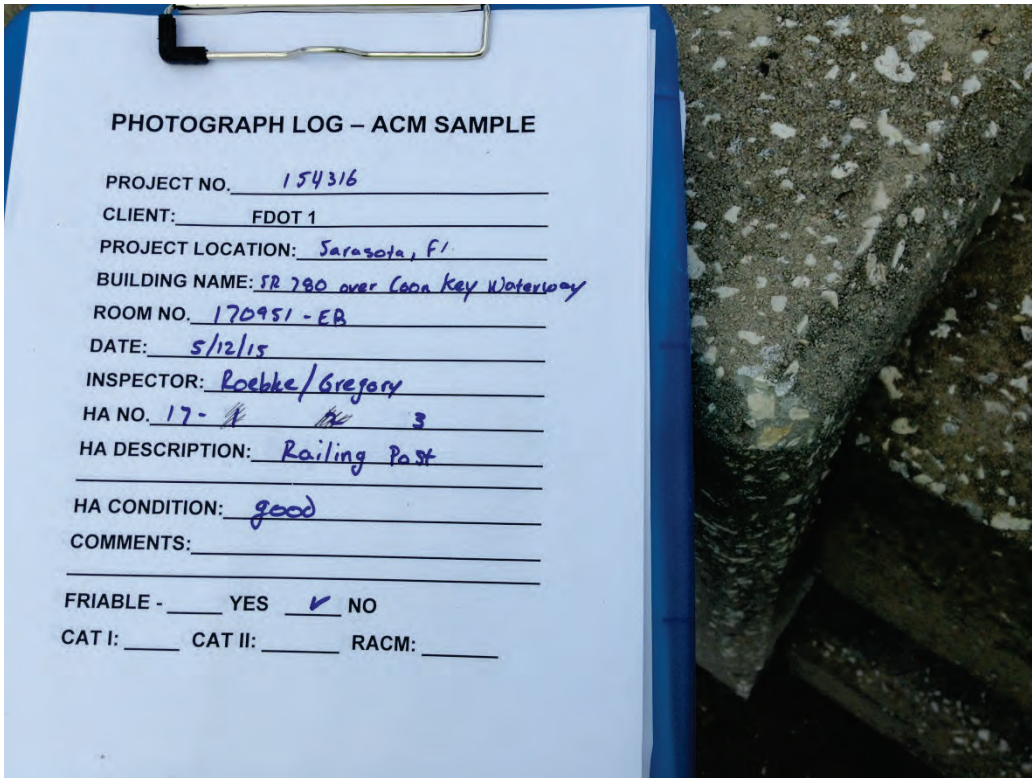 PHOTOGRAPH LOG – ACM SAMPLE
PROJECT NO. 154316
CLIENT: FDOT 1
PROJECT LOCATION: Sarasota, Fl.
BUILDING NAME: SR 780 over Coon Key Waterway
ROOM NO. 170951-EB
DATE: 5/12/15
INSPECTOR: Roebke/Gregory
HA NO. 17- 3
HA DESCRIPTION: Railing Post
HA CONDITION: good
COMMENTS:
FRIABLE - YES ✓ NO
CAT I: CAT II: RACM: